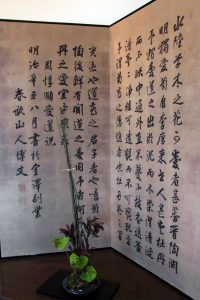 水陸草木之花可愛者甚蕃晉陶淵
明獨愛菊自李唐來世人甚愛牡丹
予獨愛蓮之出淤泥而不染濯清漣
而不妖中通外直不蔓不枝香遠益
清亭亭淨植可遠觀而不可褻翫焉
予謂菊花之隱逸者也牡丹花之富
貴者也蓮花之君子者也噫菊之愛
陶後鮮有聞蓮之愛同予者何人牡
丹之愛宜乎衆矣
周惇頤愛蓮說
明治辛丑八月書於金澤別業
春畝山人博文